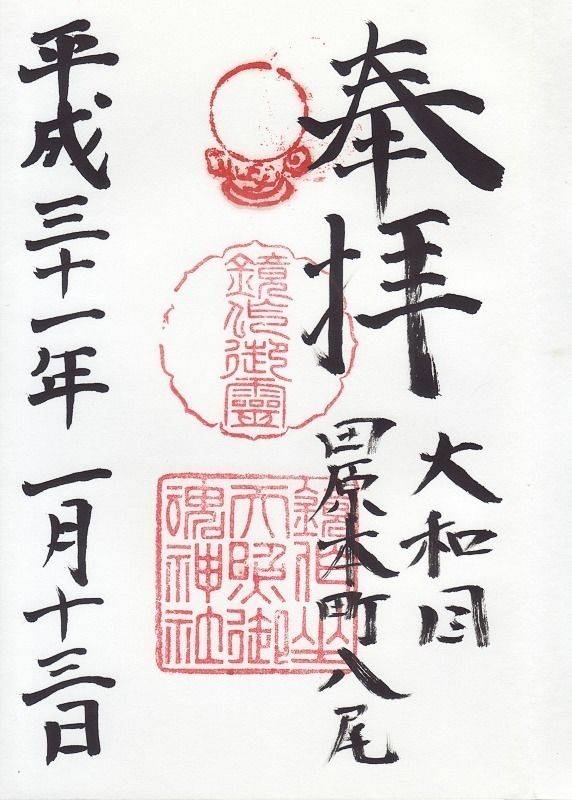 奉拝
大和国
田原本町八尾
鏡作御靈
鏡作坐
天照御
魂神社
平成三十一年一月十三日